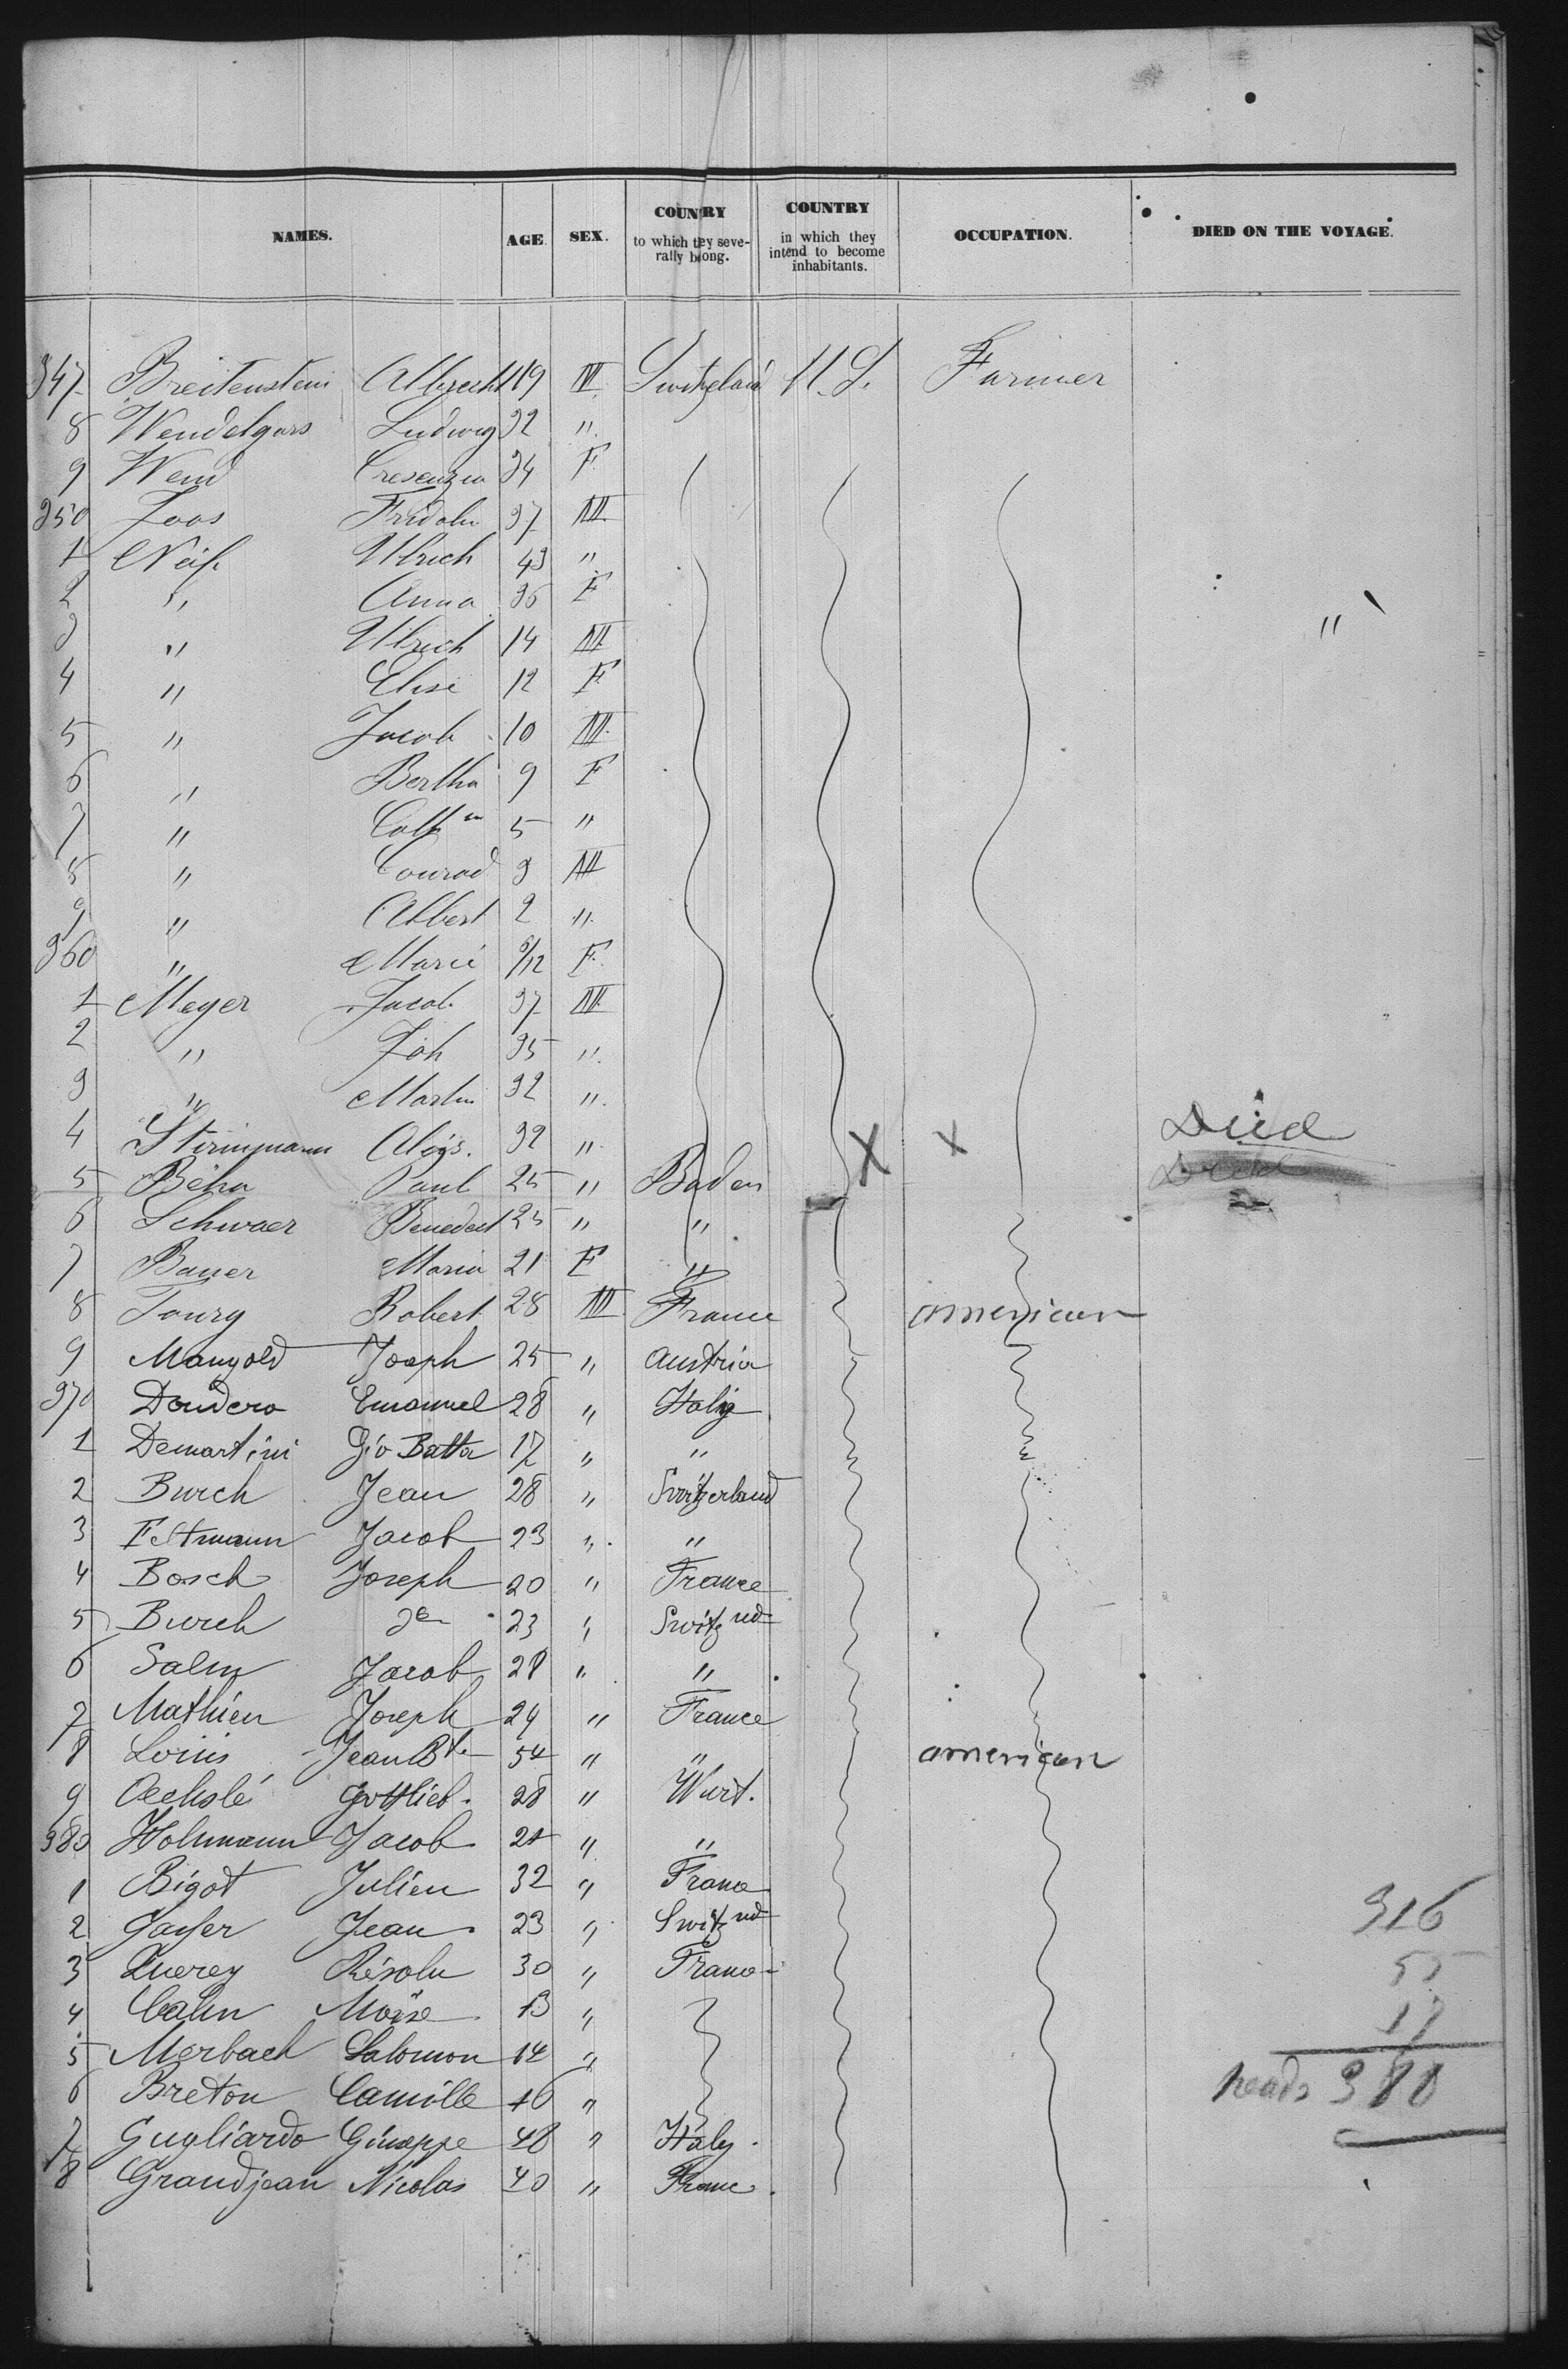 NAMES. AGE. SEX. COUNTRY to which they severally belong. COUNTRY in which they intend to become inhabitants. OCCUPATION. DIED ON THE VOYAGE.
347 Breitenstein Albrecht 19 M Switzeland U.S. Farmer
8 Wendelgars Ludwig 32 "
9 Wend Cresenzia 34 F
350 Zoos Fridolin 37 M
1 Näf Ulrich 43 "
2 " Anna 36 F
3 " Ulrich 14 M "
4 " Elise 12 F
5 " Jacob 10 M
6 " Bertha 9 F
7 " Cath 5 "
8 " Conrad 3 M
9 " Albert 2 "
360 " Marie /12 F
1 Meyer Jacob 37 M
2 " Joh 35 "
3 " Martin 32 "
4 Aloys. 32 " X X Died
5 Béha Paul 25 " Baden
6 Schwaer Benedict 25 " "
7 Bauer Maria 21 F "
8 Toury Robert 28 M France american
9 Mangold Joseph 25 " Austria
370 Dondero Emanuel 28 " Italy
1 Demartini Gio Batta 17 " "
2 Burch Jean 28 " Switzerland
3 Feltmann Jacob 23 " "
4 Bosch Joseph 20 " France
5 Burch do 23 " Switznd
6 Salm Jacob 28 " "
7 Mathieu Joseph 24 " France
8 Louis Jean Bte 54 " " american
9 Aechslé Gottlieb. 28 " Wurt.
380 Holzmann Jacob 24 " "
1 Bigot Julien 32 " France
2 Gasser Jean 23 " Switznd 316
3 Querey Résolu 30 " France 55
4 Cahn Moïse 13 " 17
5 Merbach Salomon 14 "
6 Breton Camille 16 " heads 388
7 Gugliardo Giuseppe 48 " Italy.
8 Grandjean Nicolas 40 " France.